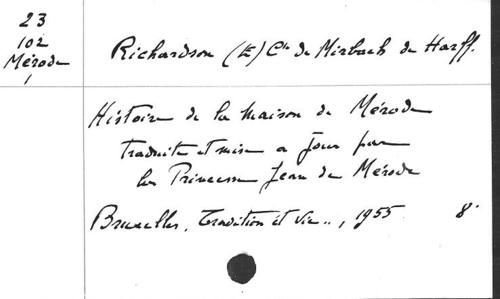 23
102
Mérode
1
Richardson (E) Cte de Mirbach de Harff.
Histoire de la maison de Mérode
traduite et mise a jour par
la Princesse Jean de Mérode
Bruxelles, Tradition et vie.., 1955 8°